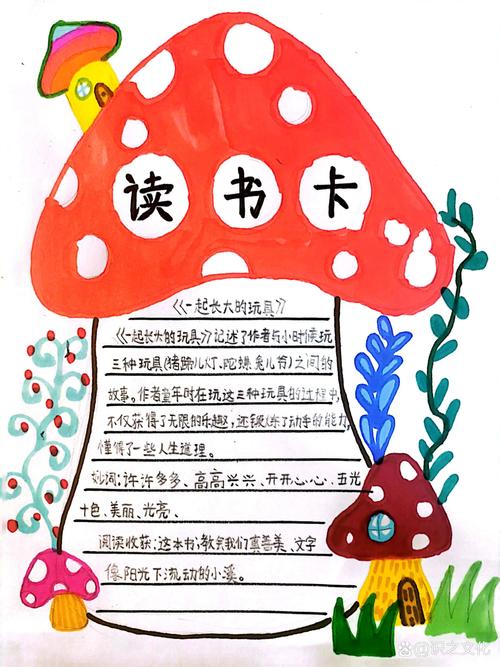 读书卡
《一起长大的玩具》
《一起长大的玩具》记述了作者与小时候玩
三种玩具(猪蹄儿灯、陀螺、兔儿爷)之间的
故事。作者童年时在玩这三种玩具的过程中,
不仅获得了无限的乐趣,还锻炼了动手的能力,
懂得了一些人生道理。
好词:许许多多、高高兴兴、开开心心、五光
十色、美丽、光亮、
阅读收获:这本书,教会我们真善美、文字
像阳光下流动的小溪。